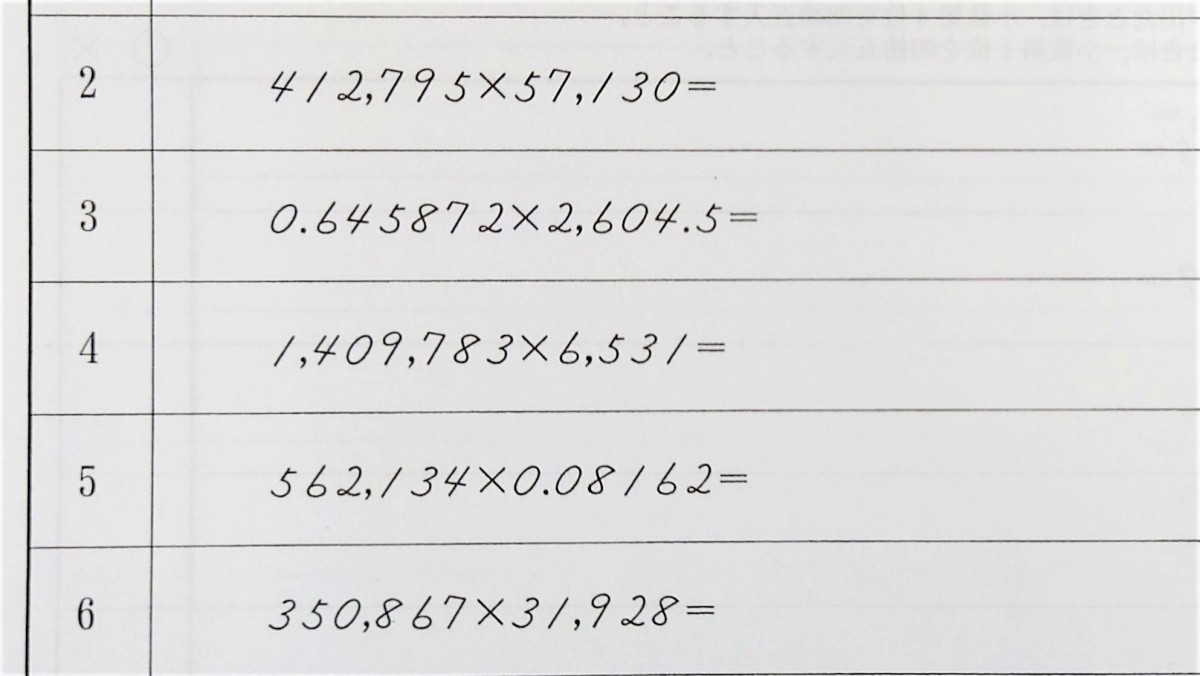 2 412,795×57,130=
3 0.645872×2,604.5=
4 1,409,783×6,531=
5 562,134×0.08162=
6 350,867×31,928=